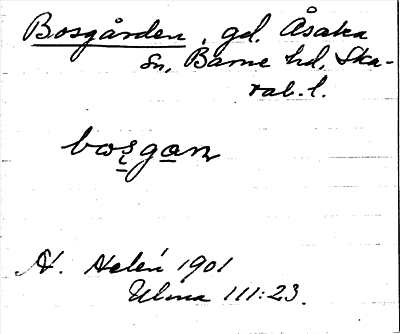 Bosgården, gd. Åsaka
sn, Barne hd, Ska-
rab. l.
bosgan
A. Helén 1901
Ulma 111:23.